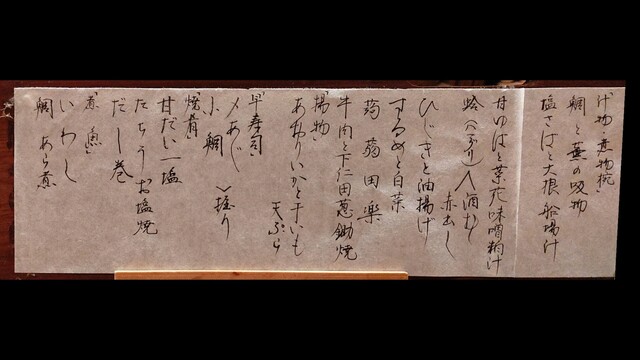 「汁物・煮物椀」
鯛と蕪の吸物
塩さばと大根 船場汁
甘ゆばと菜花 味噌粕汁
蛤(ハマグリ) 酒むし
赤出し
ひじきと油揚げ
するめと白菜
蒟蒻田楽
牛肉と下仁田葱 鋤焼
「揚物」
あおりいかと干いも
天ぷら
「早寿司」
〆あじ
小鯛
握り
「焼肴」
甘だい一塩
たちうお塩焼
だし巻
「煮魚」
いわし
鯛 あら煮